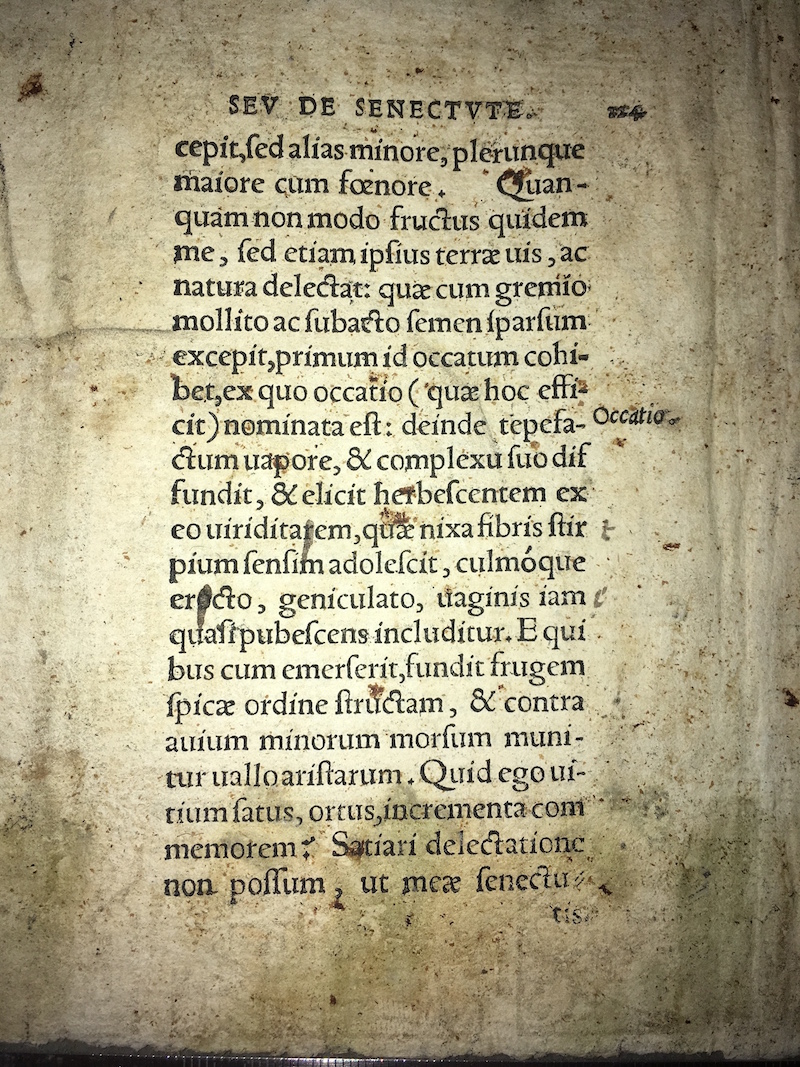 SEV DE SENECTVTE.
cepit,ſed alias minore, plerunque
maiore cum fœnore. Quan-
quam non modo fructus quidem
me, ſed etiam ipſius terræ uis, ac
natura delectat: quæ cum gremio
mollito ac ſubacto ſemen ſparſum
excepit, primum id occatum cohi-
bet, ex quo occatio (quæ hoc effi-
cit) nominata eſt: deinde tepefa-
Occatio.
ctum uapore, & complexu ſuo dif
fundit, & elicit herbeſcentem ex
eo uiriditatem, quæ nixa fibris ſtir
pium ſenſim adoleſcit, culmóque
erecto, geniculato, uaginis iam
quaſi pubeſcens includitur. E qui
bus cum emerſerit, fundit frugem
ſpicæ ordine ſtructam, & contra
auium minorum morſum muni-
tur uallo ariſtarum. Quid ego ui-
tium ſatus, ortus, incrementa com
memorem? Satiari delectatione
non poſſum, ut meæ ſenectu
tis